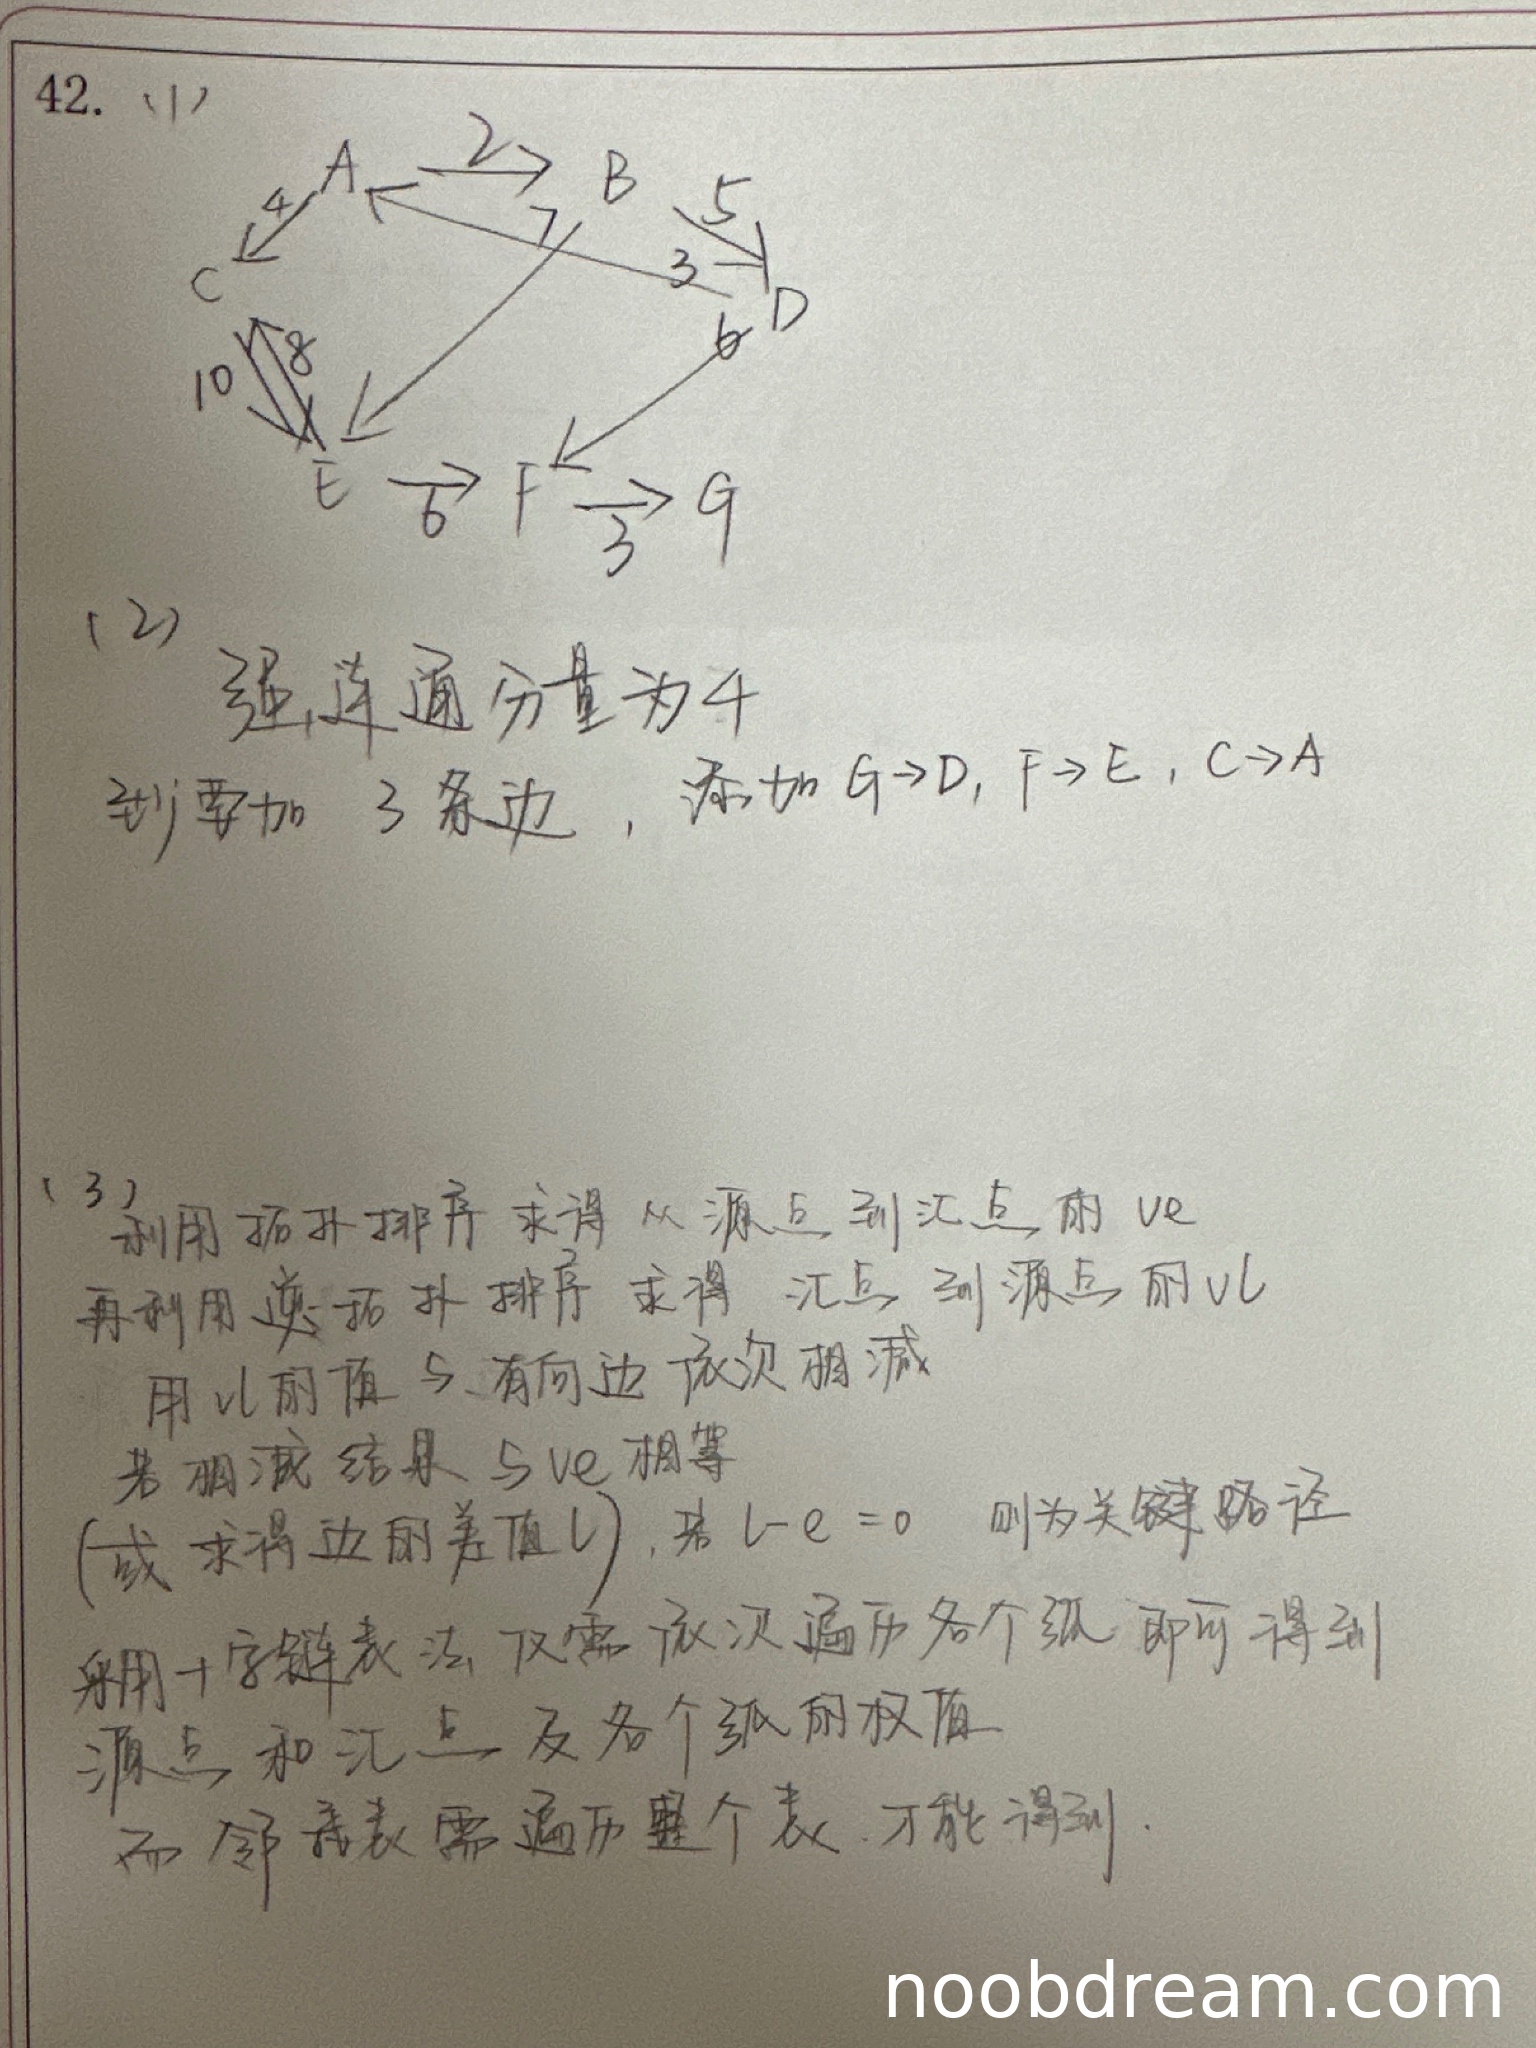 42. (1)
A 2 B 5
4 7 3
C D
10 8 6
E 6 F 3 G
(2)
强连通分量为4
到要加 3条边，添加 G→D, F→E, C→A
(3)
利用拓扑排序 求得 从源点到汇点的 ve
再利用逆拓扑排序 求得 汇点到源点的vl
用vl的值与有向边依次相减
若相减结果与ve相等
(或求得边的差值l), 若 l-e=0 则为关键路径
采用十字链表法仅需依次遍历各个弧即可得到
源点和汇点及各个弧的权值
而邻接表需遍历整个表才能得到.
noobdream.com